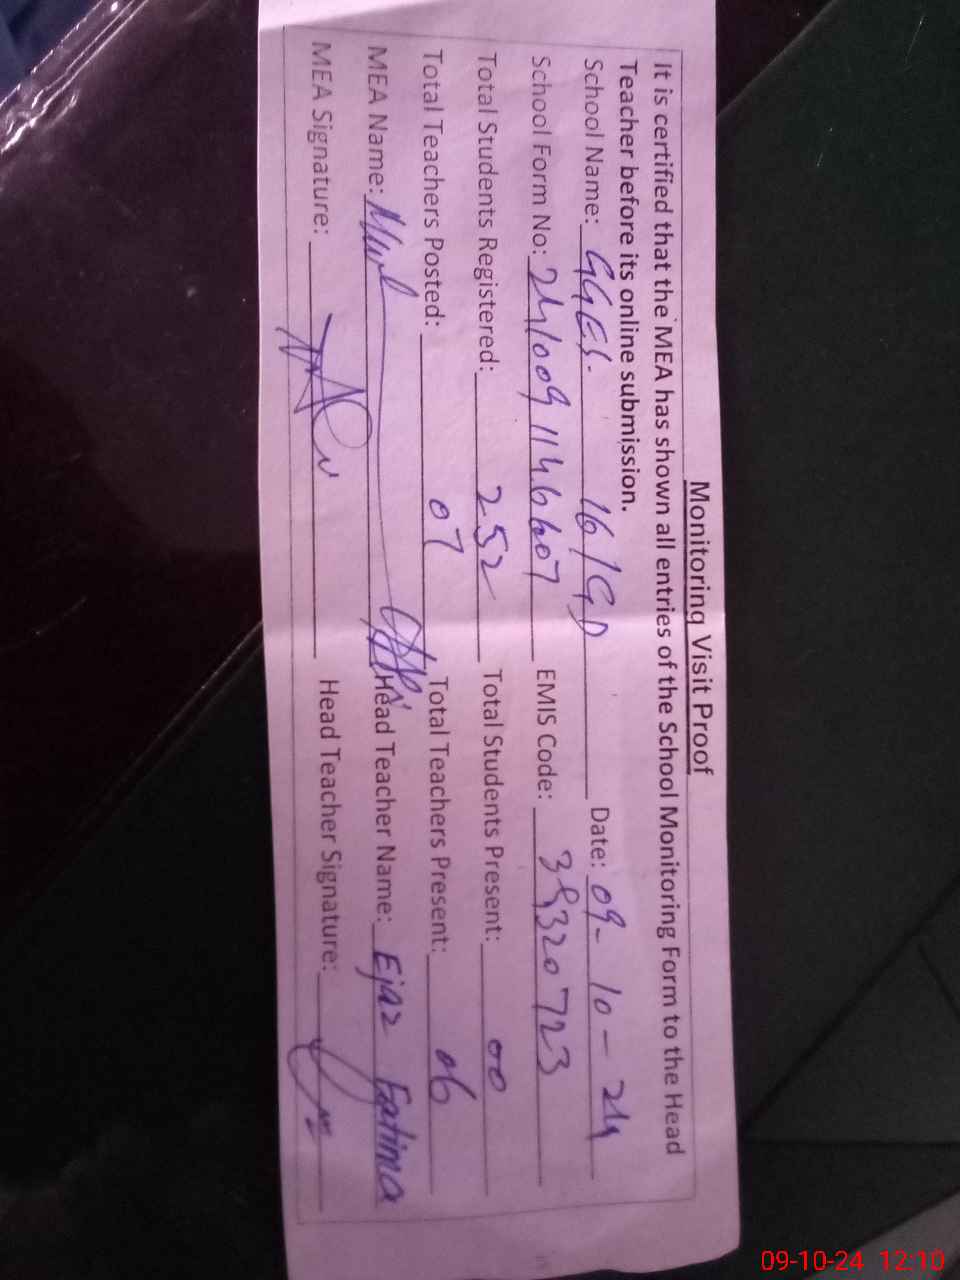 Monitoring Visit Proof
It is certified that the MEA has shown all entries of the School Monitoring Form to the Head
Teacher before its online submission.
School Name: GGES. 16/GD Date: 09-10-24
School Form No: 2410091146607 EMIS Code: 39320723
Total Students Registered: 252 Total Students Present: 00
Total Teachers Posted: 07 Total Teachers Present: 06
MEA Name: Head Teacher Name: Ejaz Fatima
MEA Signature: Head Teacher Signature:
09-10-24 12:10